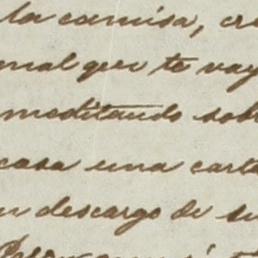 la camisa, cr
mal que te vay
meditando sob
casa una carta
un descargo de su